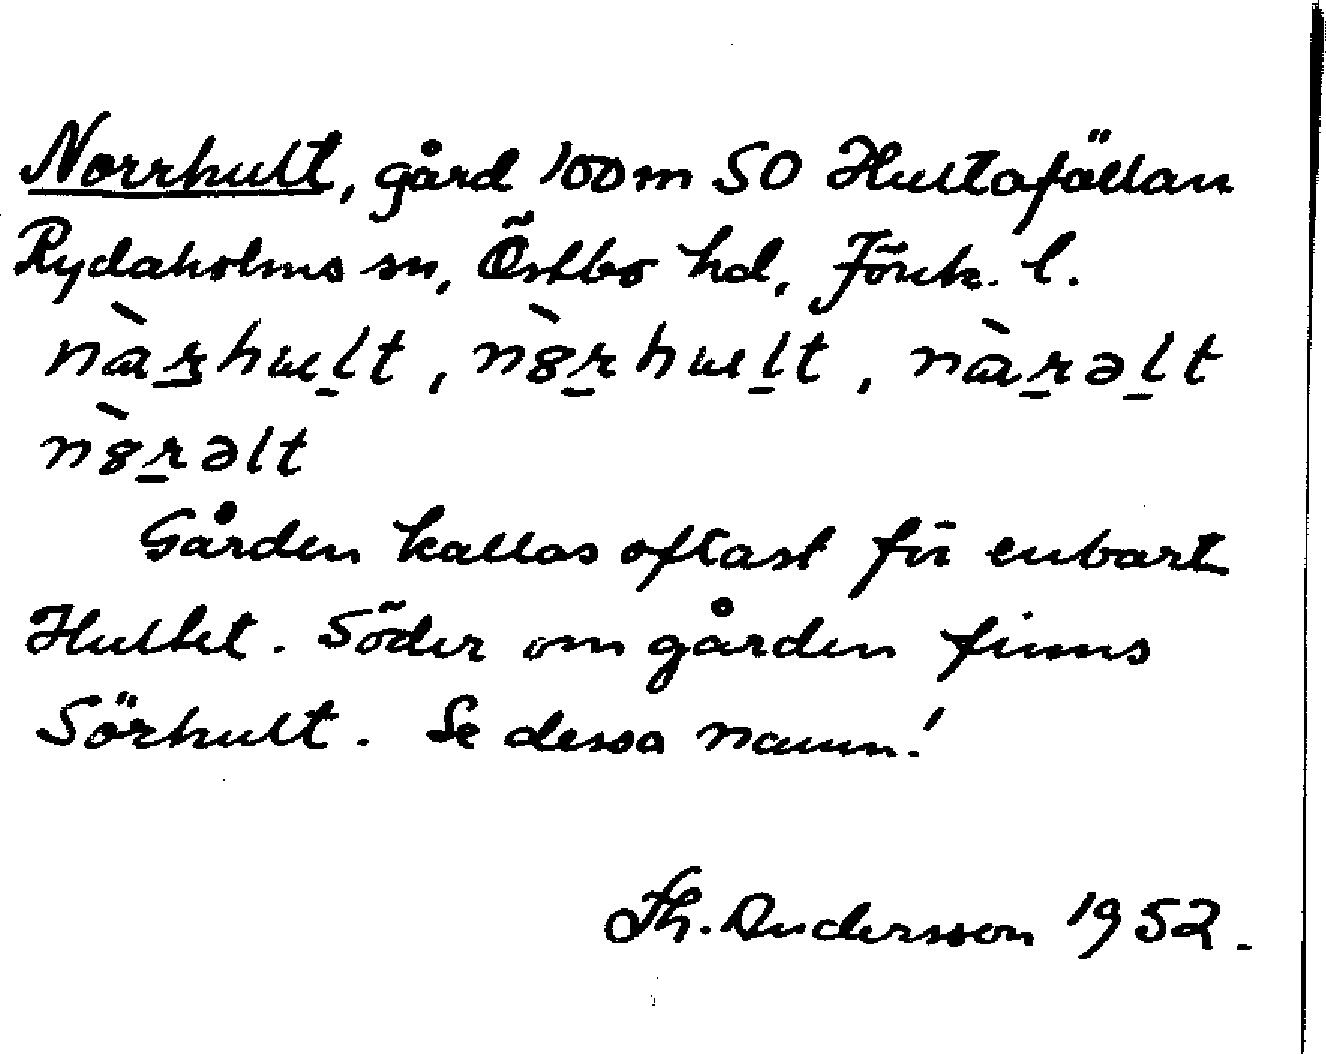 Norrhult, gård 100 m SO Hultafällan
Rydaholms sn, Östbo hd, Jönk. l.
nàr̠hul̠t, nòr̠hul̠t, nàr̠əl̠t
nòr̠əlt
Gården kallas oftast för enbart
Hultet. Söder om gården finns
Sörhult. Se dessa namn!
Th. Andersson 1952.